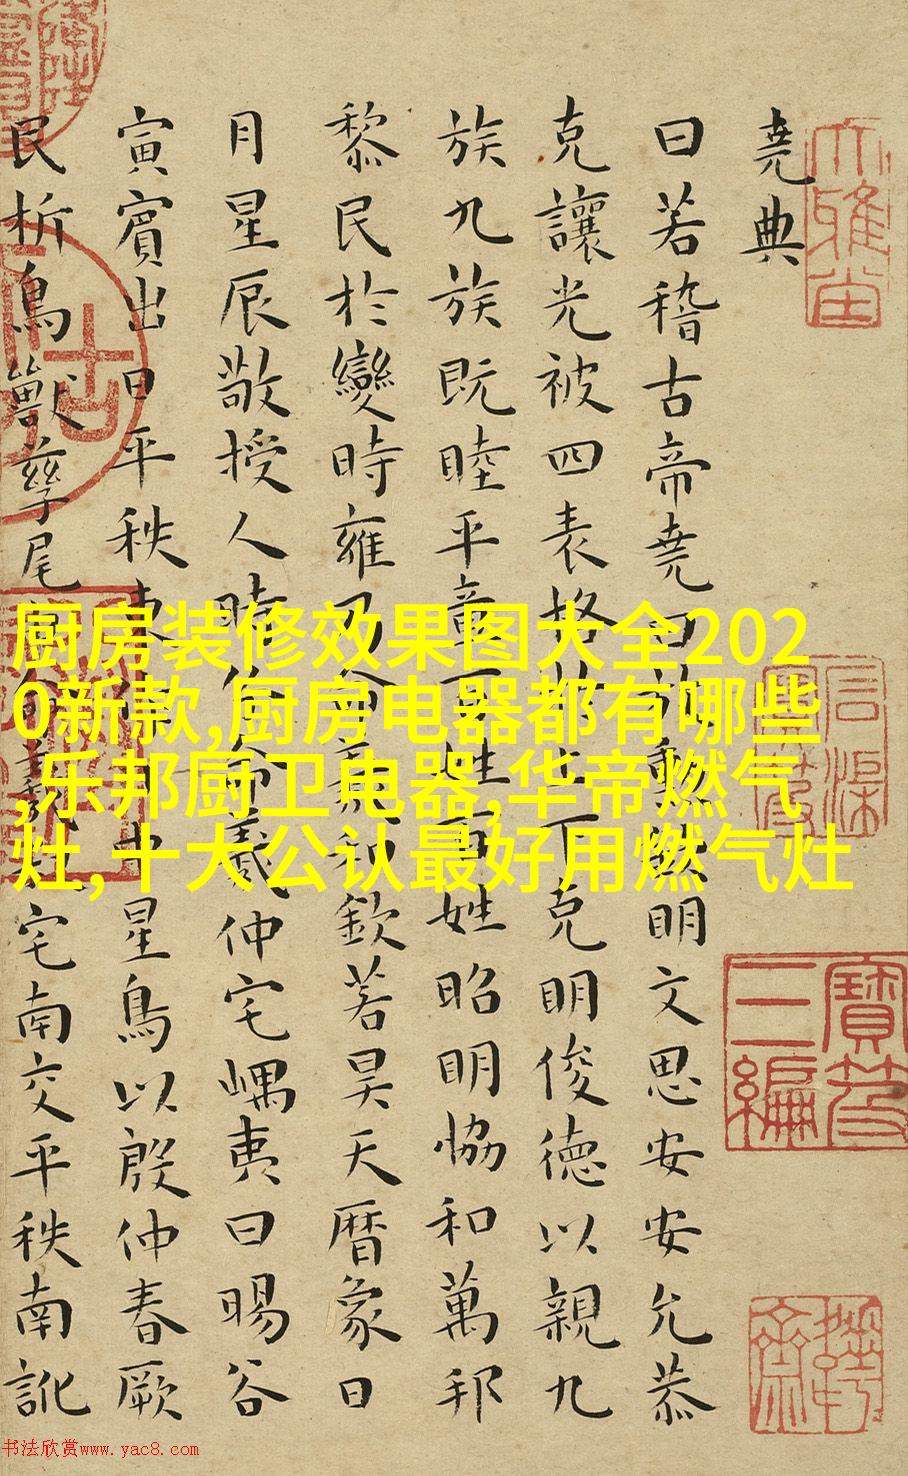 堯典
曰若稽古帝堯曰放勳欽明文思安安允恭
克讓光被四表格于上下克明俊德以親九
族九族既睦平章百姓百姓昭明恊和萬邦
黎民於變時雍乃命羲和欽若昊天曆象日
月星辰敬授人時分命羲仲宅嵎夷曰暘谷
寅賓出日平秩東作日中星鳥以殷仲春厥
民析鳥獸孳尾申命羲叔宅南交平秩南訛
厨房装修效果图大全202
0新款,厨房电器都有哪些
,乐邦厨卫电器,华帝燃气
灶,十大公认最好用燃气灶
寶笈
三編
书法欣赏www.yac8.com